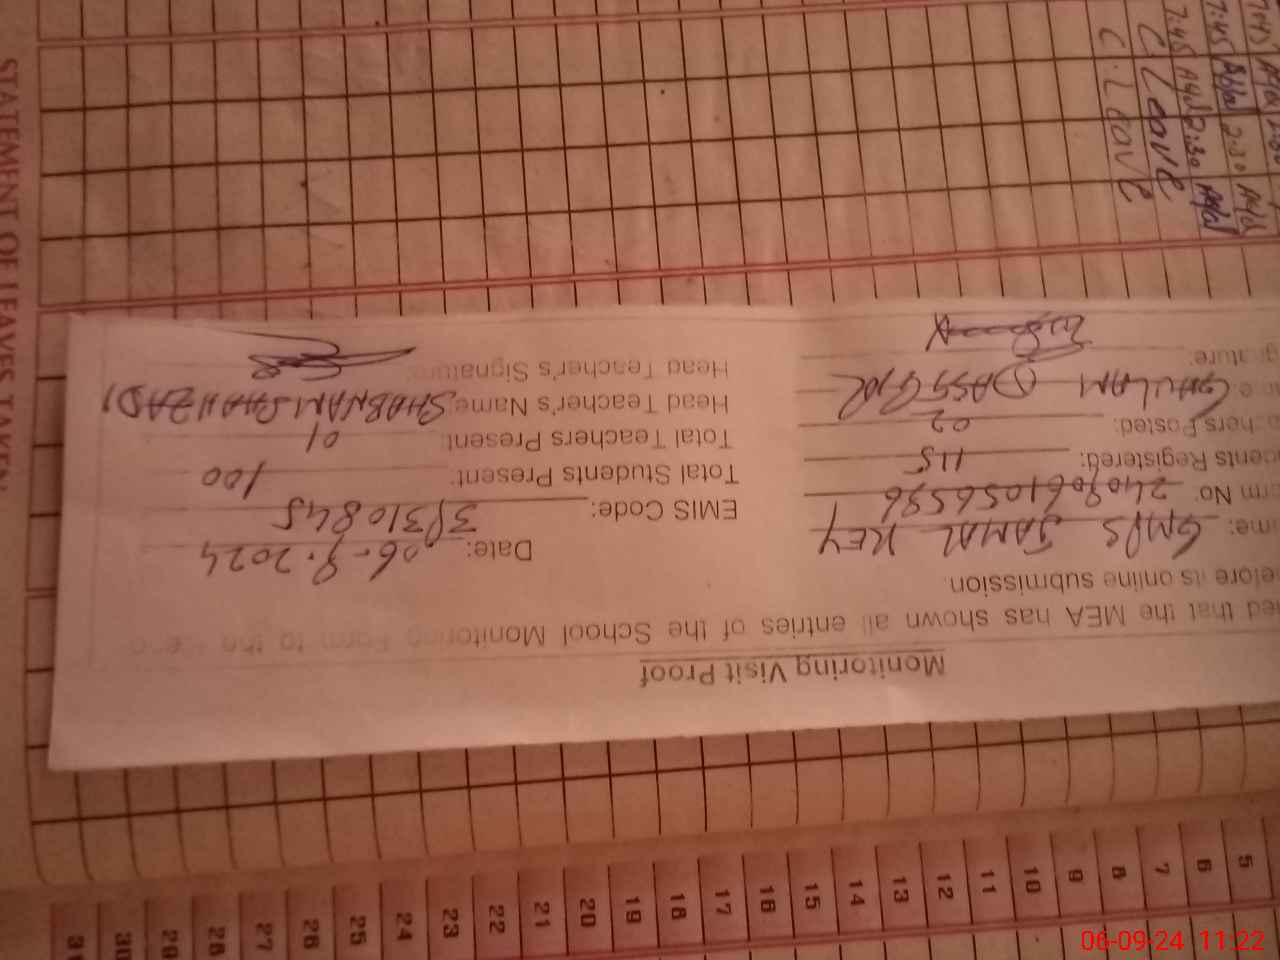 Monitoring Visit Proof
ed that the MEA has shown all entries of the School Monitoring Form to the
before its online submission.
Date: 06-9.2024
me: GMPS JAMAL KEY
rm No. 2409061056596
EMIS Code: 31310845
dents Registered: 115
Total Students Present: 100
chers Posted: 02
Total Teachers Present: 01
e GHULAM
Head Teacher's Name: SHABNAM SHAHZADI
gnature:
Head Teacher's Signature:
STATEMENT OF LEAVES TAKEN
7:45
7:45 2:30
7:45 2:30
C Leave
C.Leave
5 6 7 8 9 10 11 12 13 14 15 16 17 18 19 20 21 22 23 24 25 26 27 28 29 30 31
06-09-24 11:22